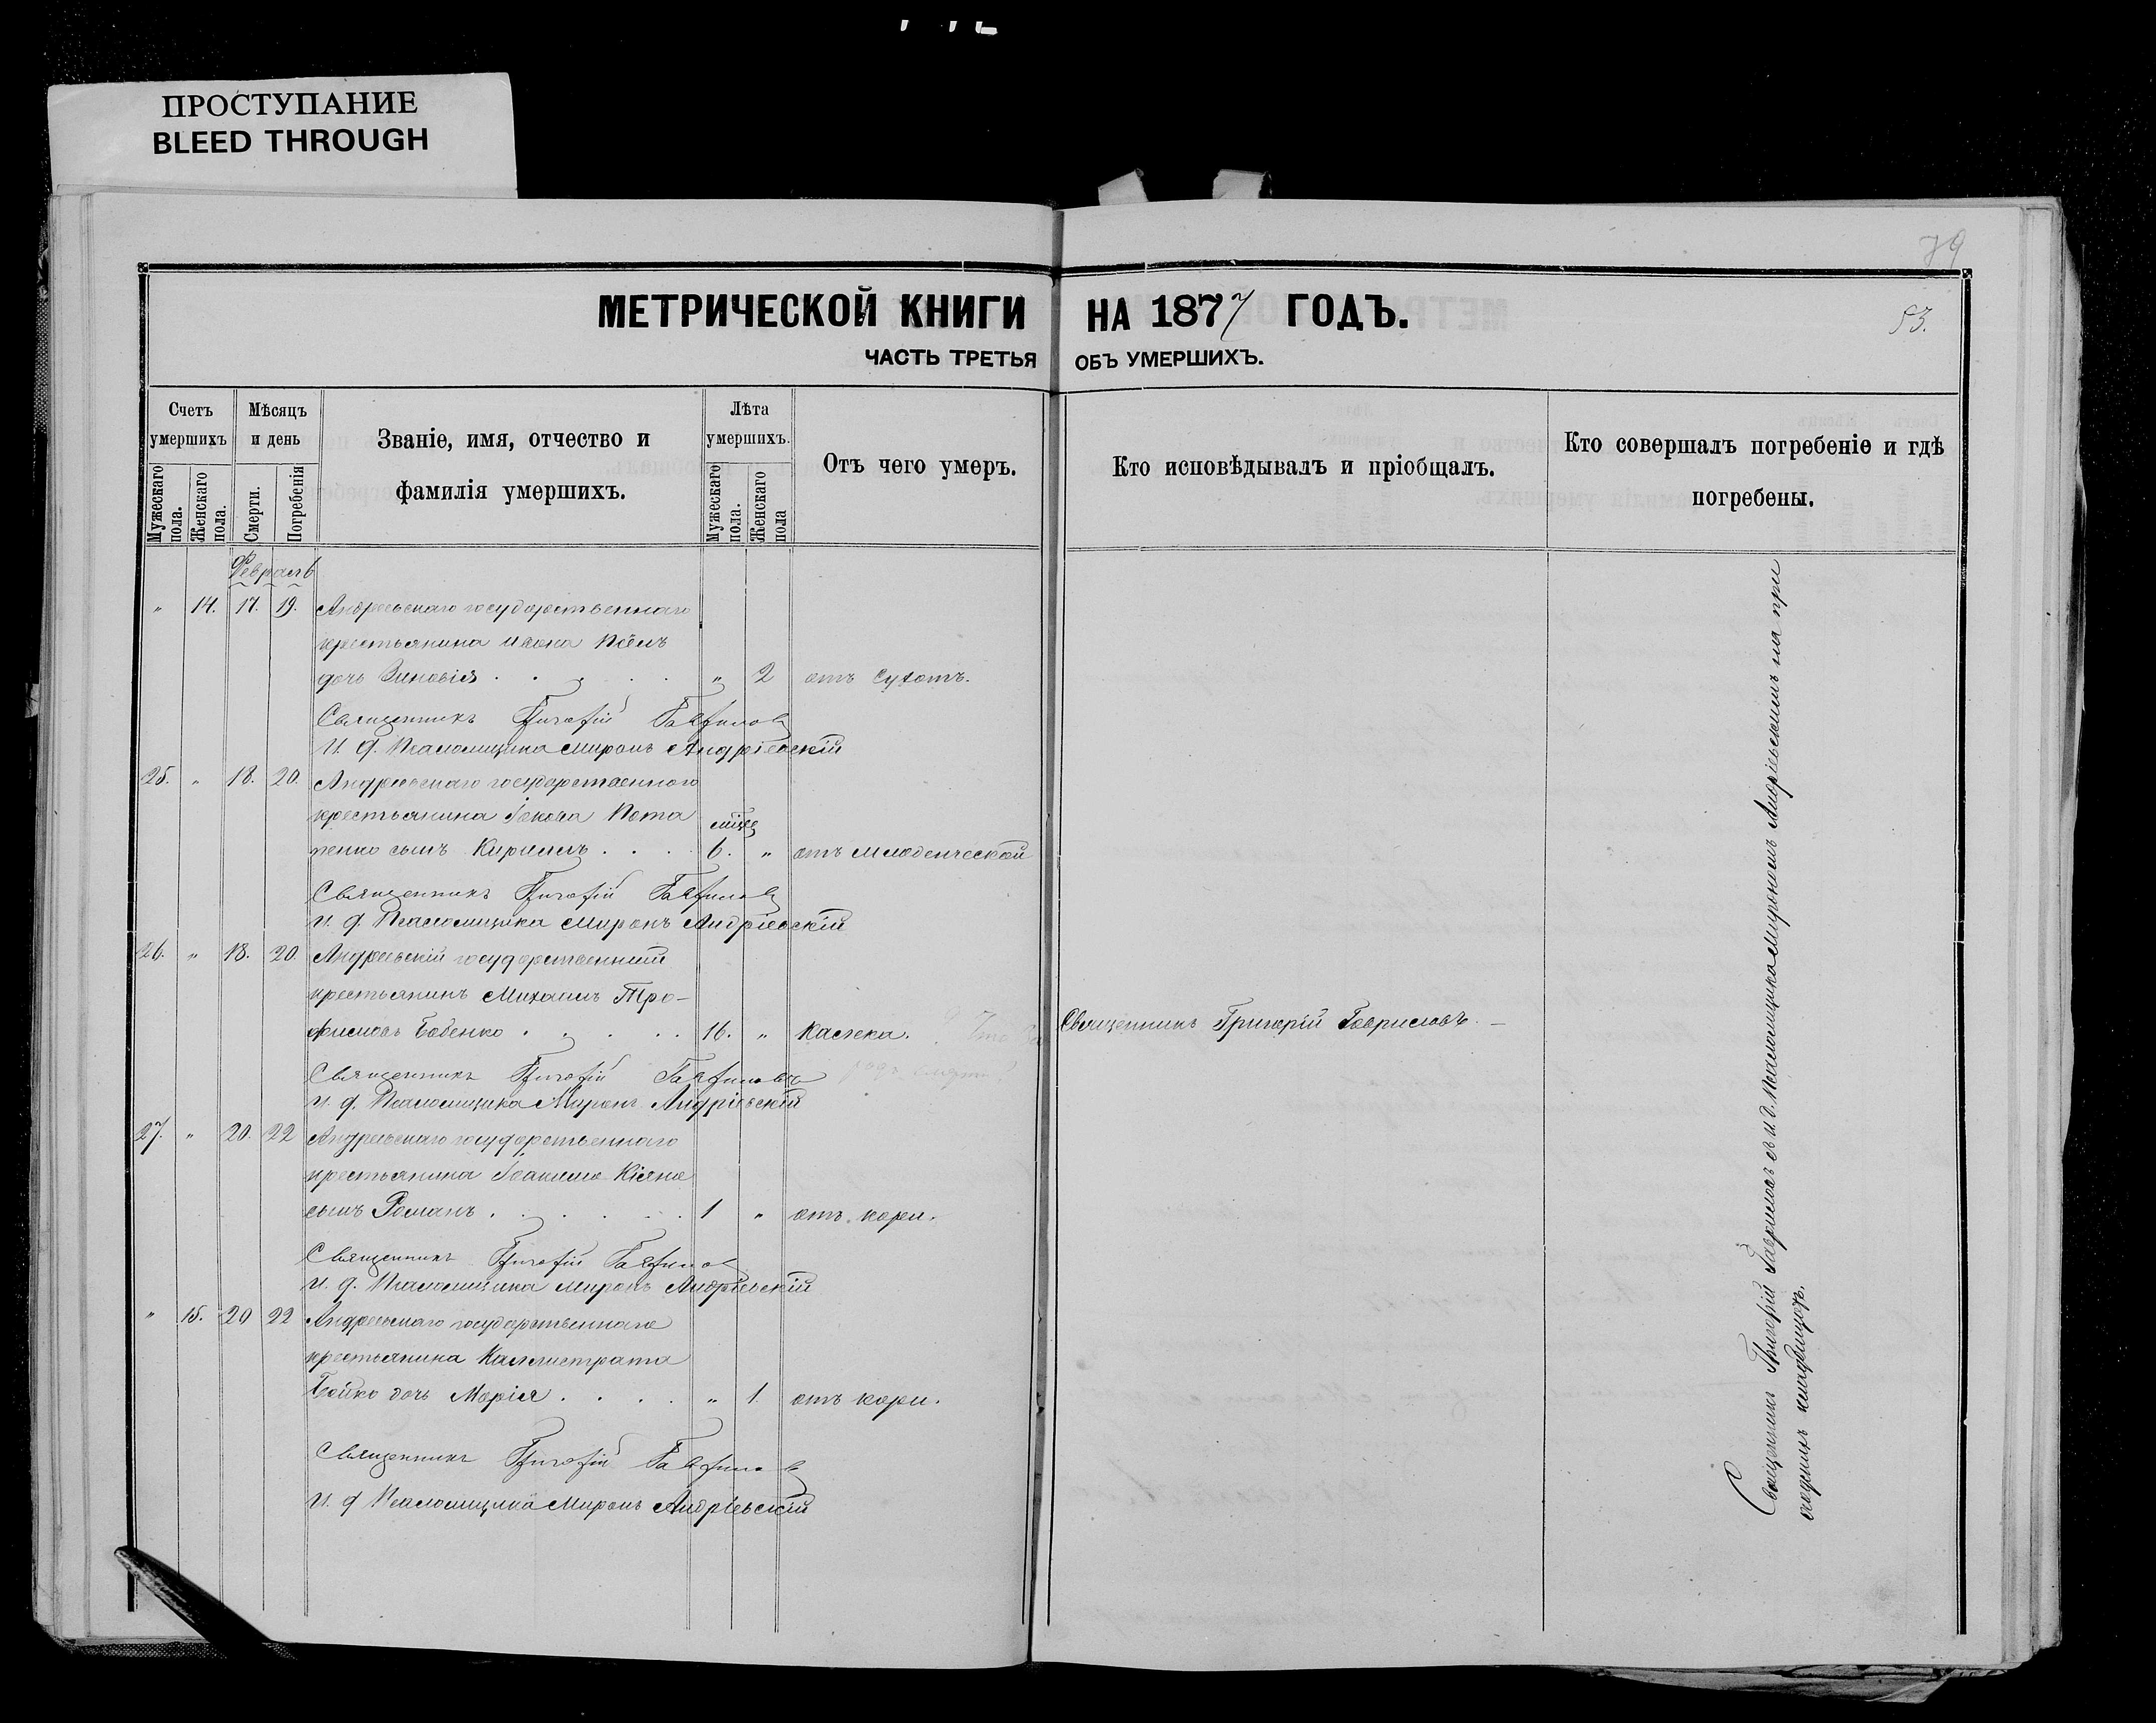 ПРОСТУПАНИЕ
BLEED THROUGH
79
МЕТРИЧЕСКОЙ КНИГИ НА 1877 ГОДЪ.
53.
ЧАСТЬ ТРЕТЬЯ ОБЪ УМЕРШИХЪ.
Счетъ умершихъ
Мужескаго пола.
Женскаго пола.
Мѣсяцъ и день
Смерти.
Погребенія
Званіе, имя, отчество и фамилія умершихъ.
Лѣта умершихъ.
Мужескаго пола.
Женскаго пола
Отъ чего умеръ.
Кто исповѣдывалъ и пріобщалъ.
Кто совершалъ погребеніе и гдѣ погребены.
Февраль
" 14. 17. 19. Андреевскаго государственнаго
крестьянина Ивана
дочь Зиновія . . . . . " 2 отъ сухотъ.
Священникъ Григорій Гаврилов
И. д. Псаломщика Миронъ Андріевскій
25. " 18. 20. Андреевскаго государственного
крестьянина Іакова Пота
пенко сынъ Кириллъ . . . . 6. " отъ младенческой
Священникъ Григорій Гаврилов
и. д. Псаломщика Миронъ Андріевскій
26. " 18. 20. Андреевскій государственный
крестьянинъ Михаилъ Тро-
фимовъ Бабенко . . . . . 16. " Калека. Священникъ Григорій Гавриловъ. —
Священникъ Григорій Гавриловъ
и. д. Псаломщика Миронъ Андріевскій
27. " 20. 22 Андреевскаго государственнаго
крестьянина Іоакима
сынъ Романъ . . . . . 1 " отъ кори.
Священникъ Григорій Гаврилов
и. д. Псаломщика Миронъ Андріевскій
" 15. 20 22 Андреевскаго государственнаго
крестьянина Каллистрата
Бойко дочь Марія . . . . " 1. отъ кори.
Священникъ Григорій Гаврилов
И. д Псаломщика Миронъ Андріевскій
Священникъ Григорій Гавриловъ съ и. д. Псаломщика Мирономъ Андріевскимъ на при
ходскомъ кладбищѣ.